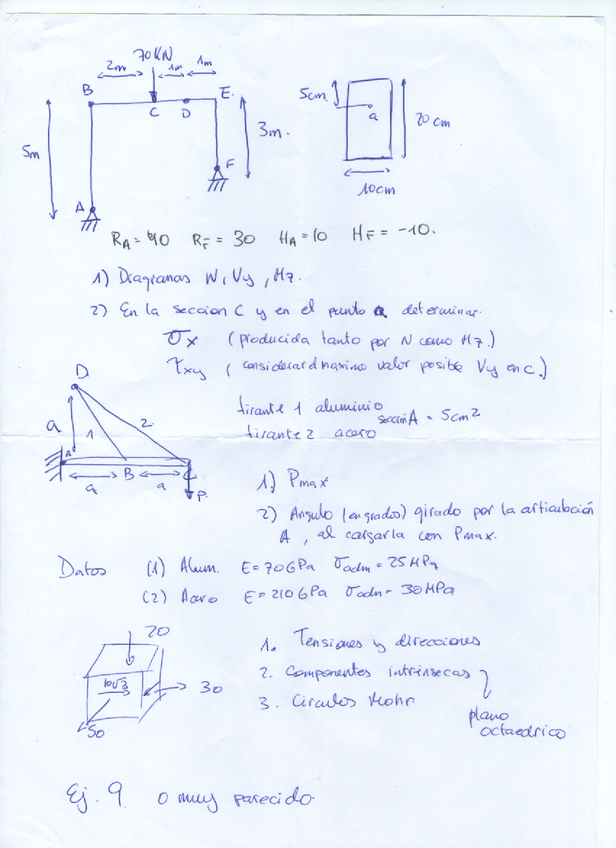 70KN
2m 1m 1m
B C D E
5m 3m.
A F
5cm a 20cm
10cm
RA = 40 RF = 30 HA = 10 HF = -10.
1) Diagramas N, Vy, Mz.
2) En la seccion C y en el punto a determinar.
σx (producida tanto por N como Mz.)
τxy (considerar el maximo valor posible Vy en C.)
D
a 1 2
A B C
a a P.
tirante 1 aluminio
tirante 2 acero
sección A = 5cm²
1) Pmax
2) Angulo (en grados) girado por la articulación
A, al cargarla con Pmax.
Datos (1) Alum. E = 70GPa σadm = 25MPa
(2) Acero E = 210GPa σadm = 30MPa
20
10√3 30
50
1. Tensiones y direcciones
2. Componentes intrinsecas
3. Circulos Mohr
plano
octaedrico
Ej. 9 o muy parecido.